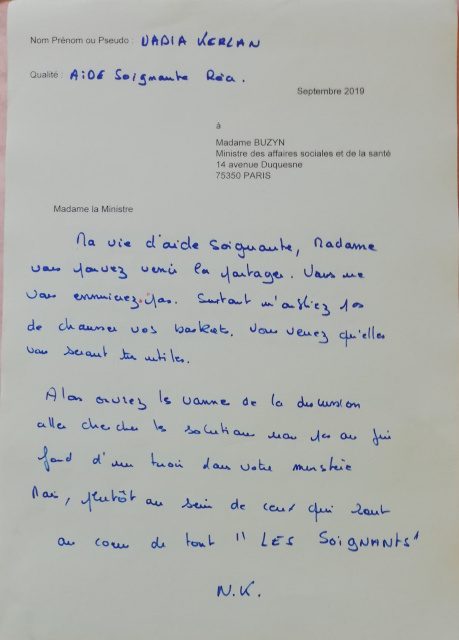 Nom Prénom ou Pseudo : NADIA KERLAN
Qualité : AiDE Soignante Réa.
Septembre 2019
à
Madame BUZYN
Ministre des affaires sociales et de la santé
14 avenue Duquesne
75350 PARIS
Madame la Ministre
Ma vie d'aide soignante, Madame
vous pouvez venir la partager. Vous ne
vous ennuierez pas. Surtout n'oubliez pas
de chausser vos baskets. Vous verrez qu'elles
vous seront très utiles.
Alors ouvrez les vanne de la discussion
aller chercher les solutions non pas au fin
fond d'un tiroir dans votre ministère
Mais, plutôt au sein de ceux qui sont
au coeur de tout " LES SOIGNANTS"
N.K.